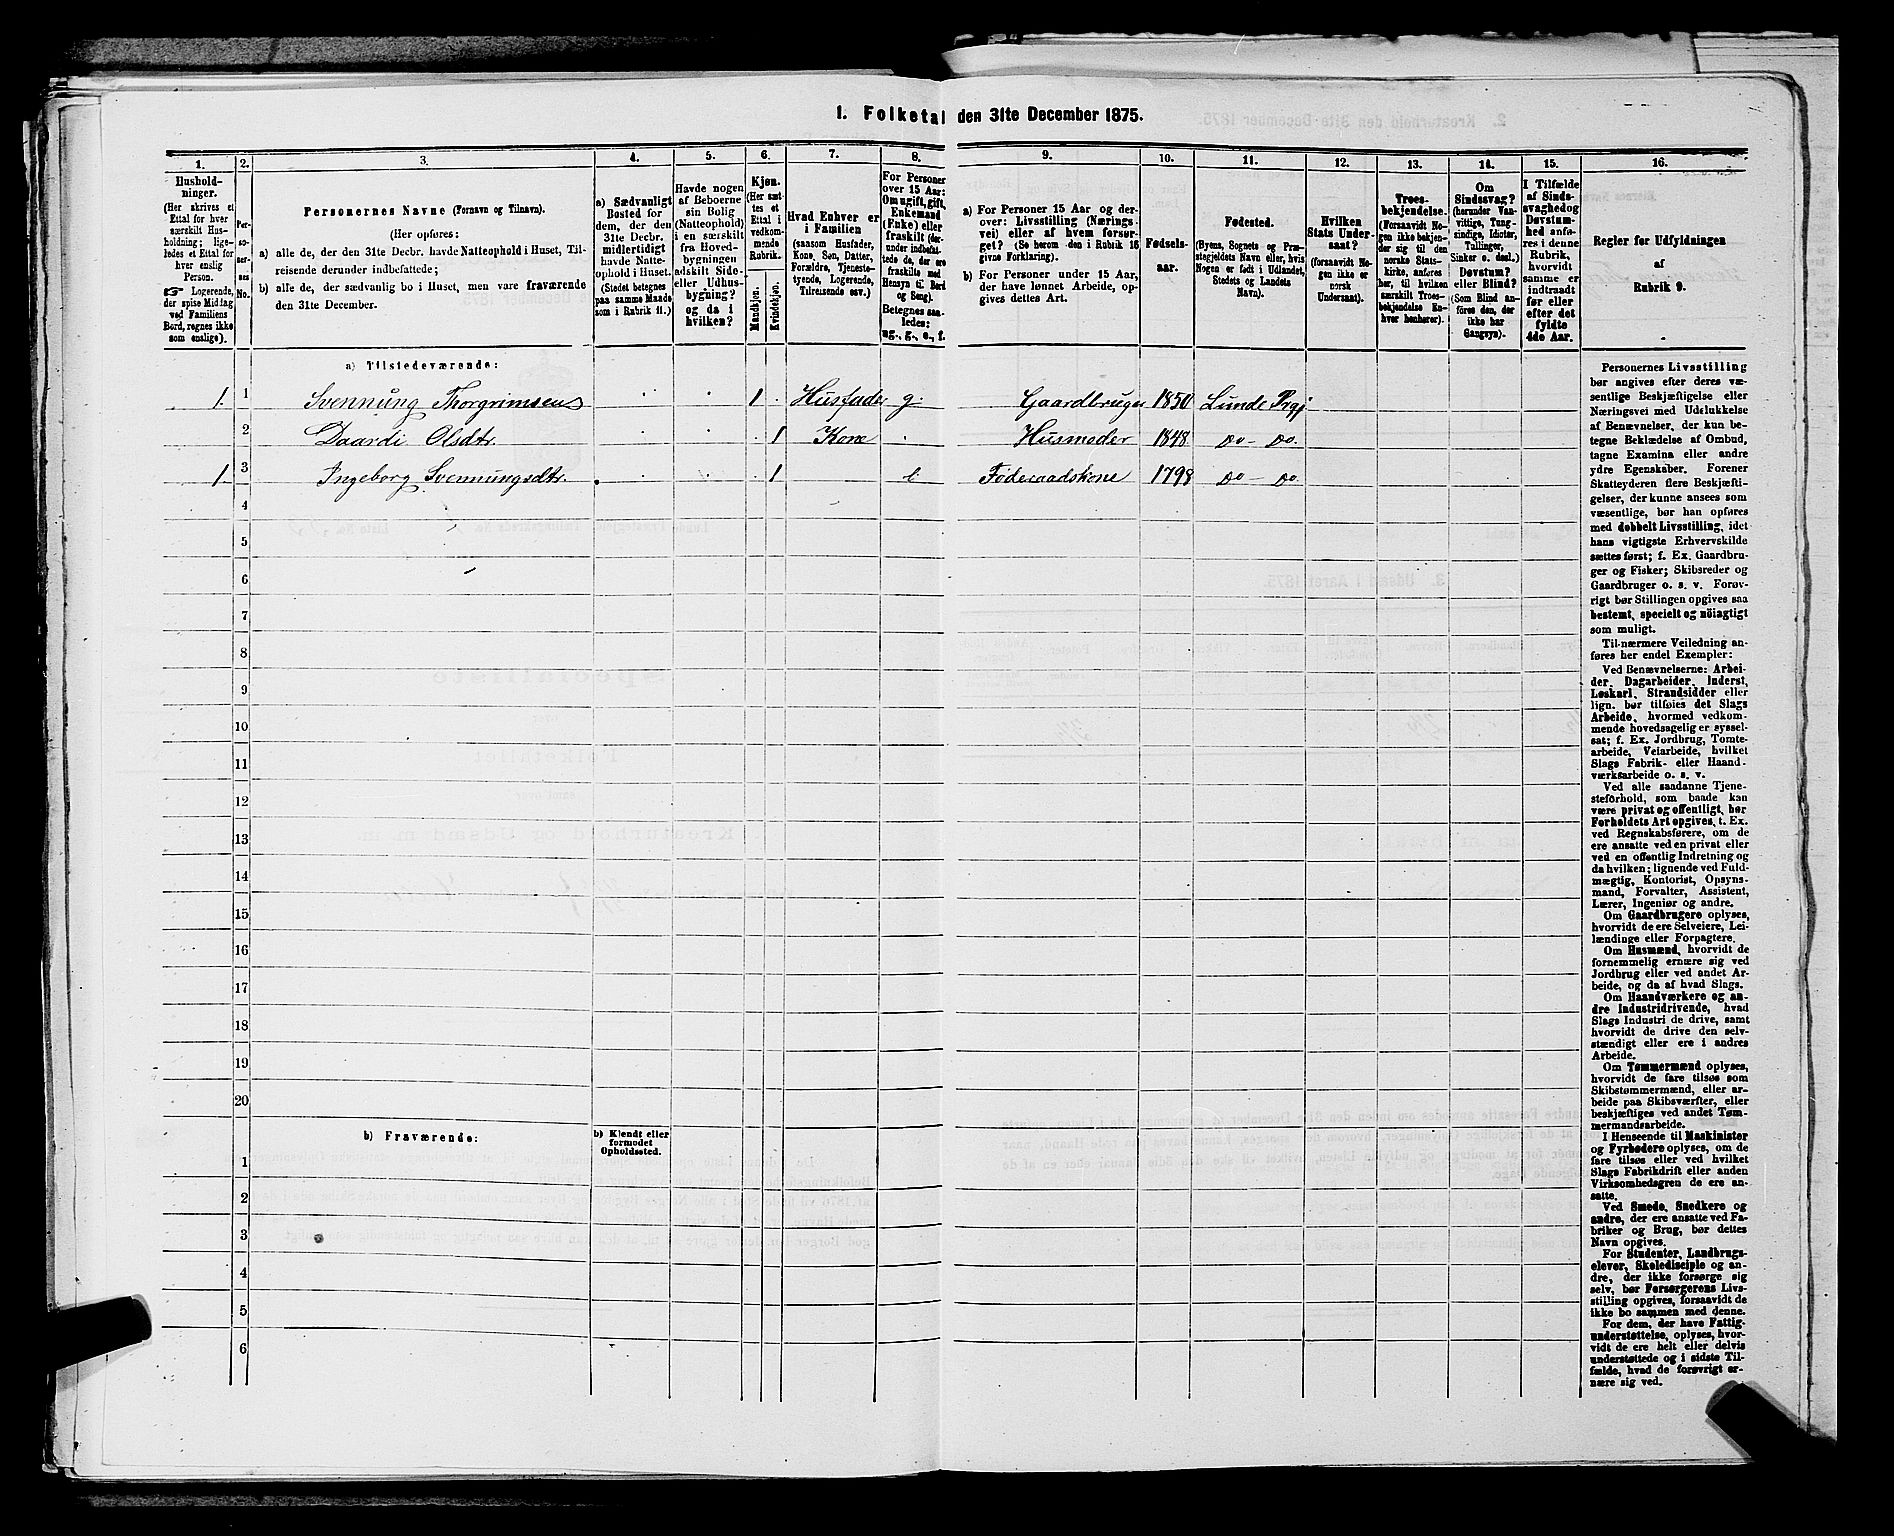 1. Folketal den 31te December 1875.
1.
Hushold-
ninger.
(Her skrives et
Ettal for hver
særskilt Hus-
holdning; lige-
ledes et Ettal for
hver enslig
Person.
☞ Logerende,
der spise Middag
ved Familiens
Bord, regnes ikke
som enslige).
2.
Per-
so-
ner-
nes
No.
3.
Personernes Navne (Fornavn og Tilnavn).
(Her opføres:
a) alle de, der den 31te Decbr. havde Natteophold i Huset, Til-
reisende derunder indbefattede;
b) alle de, der sædvanlig bo i Huset, men vare fraværende
den 31te December.
4.
a) Sædvanligt
Bosted for
dem, der den
31te Decbr.
midlertidigt
havde Natte-
ophold i Huset.
(Stedet betegnes
paa samme Maade
som i Rubrik 11.)
5.
Havde nogen
af Beboerne
sin Bolig
(Natteophold)
i en særskilt
fra Hoved-
bygningen
adskilt Side-
eller Udhus-
bygning?
og da i
hvilken?
6.
Kjøn.
(Her sæt-
tes et
Ettal i
vedkom-
mende
Rubrik.
Mandkjøn.
Kvindekjøn.
7.
Hvad Enhver er
i Familien
(saasom Husfader,
Kone, Søn, Datter,
Forældre, Tjeneste-
tyende, Logerende,
Tilreisende osv.)
8.
For Personer
over 15 Aar:
Om ugift, gift,
Enkemand
(Enke) eller
fraskilt (der-
under indbefat-
tede de, der ere
fraskilte med
Hensyn til Bord
og Seng).
Betegnes saa-
ledes:
ug., g., e., f.
9.
a) For Personer 15 Aar og der-
over: Livsstilling (Nærings-
vei) eller af hvem forsør-
get? (Se herom den i Rubrik 16
givne Forklaring).
b) For Personer under 15 Aar,
der have lønnet Arbeide, op-
gives dettes Art.
10.
Fødsels-
aar.
11.
Fødested.
(Byens, Sognets og Præ-
stegjeldets Navn eller, hvis
Nogen er født i Udlandet,
Stedets og Landets
Navn).
12.
Hvilken
Stats Under-
saat?
(forsaavidt No-
gen ikke er
norsk
Undersaat).
13.
Troes-
bekjendelse.
(Forsaavidt No-
gen ikke bekjen-
der sig til den
norske Stats-
kirke, anføres
her, til hvilken
særskilt Troes-
bekjendelse En-
hver henhører).
14.
Om
Sindssvag?
(herunder Van-
vittige, Tung-
sindige, Idioter,
Tullinger,
Sinker o. desl.)
Døvstum?
eller Blind?
(Som Blind an-
føres den, der
ikke har
Gangsyn).
15.
I Tilfælde
af Sinds-
svaghed og
Døvstum-
hed anfø-
res i denne
Rubrik,
hvorvidt
samme er
indtraadt
før eller
efter det
fyldte
4de Aar.
16.
Regler for Udfyldningen
af
Rubrik 9.
a) Tilstedeværende:
1. 1 Svennung Thorgrimsen 1 Husfader g. Gaardbruger 1850 Lunde Prgj
2 Daardi Olsdtr. 1 Kone Husmoder 1848 Do — Do.
1. 3 Ingeborg Svennungsdtr. 1 Føderaadskone 1798 Do — Do.
4
5
6
7
8
9
10
11
12
13
14
15
16
17
18
19
20
b) Fraværende:
b) Kjendt eller
formodet
Opholdssted.
1
2
3
4
5
6
Personernes Livsstilling
bør angives efter deres væ-
sentlige Beskjæftigelse eller
Næringsvei med Udelukkelse
af Benævnelser, der kun be-
tegne Beklædelse af Ombud,
tagne Examina eller andre
ydre Egenskaber. Forener
Skatteyderen flere Beskjæfti-
gelser, der kunne ansees som
væsentlige, bør han opføres
med dobbelt Livsstilling, idet
hans vigtigste Erhvervskilde
sættes først; f. Ex. Gaardbru-
ger og Fisker; Skibsreder og
Gaardbruger o. s. v. Forøv-
rigt bør Stillingen opgives saa
bestemt, specielt og nöiagtigt
som muligt.
Til nærmere Veiledning an-
føres her endel Exempler:
Ved Benævnelserne: Arbei-
der, Dagarbeider, Inderst,
Løskarl, Strandsidder eller
lign. bør tilføies det Slags
Arbeide, hvormed vedkom-
mende hovedsagelig er syssel-
sat; f. Ex. Jordbrug, Tomte-
arbeide, Veiarbeide, hvilket
Slags Fabrik- eller Haand-
værksarbeide o. s. v.
Ved alle saadanne Tjene-
steforhold, som baade kan
være privat og offentligt, bør
Forholdets Art opgives, t. Ex.
ved Regnskabsførere, om de
ere ansatte ved en privat eller
ved en offentlig Indretning og
da hvilken; lignende ved Fuld-
mægtig, Kontorist, Opsyns-
mand, Forvalter, Assistent,
Lærer, Ingeniør og andre.
Om Gaardbrugere oplyses,
hvorvidt de ere Selveiere, Lei-
lændinge eller Forpagtere.
Om Husmænd, hvorvidt de
fornemmelig ernære sig ved
Jordbrug eller ved andet Ar-
beide, og da af hvad Slags.
Om Haandværkere og an-
dre Industridrivende, hvad
Slags Industri de drive, samt
hvorvidt de drive den selv-
stændigt eller ere i andres
Arbeide.
Om Tømmermænd oplyses,
hvorvidt de fare tilsøs som
Skibstømmermænd, eller ar-
beide paa Skibsværfter, eller
beskjæftiges ved andet Tøm-
mermandsarbeide.
I Henseende til Maskinister
og Fyrbødere oplyses, om de
fare tilsøs eller ved hvilket
Slags Fabrikdrift eller anden
Virksomhedsgren de ere an-
satte.
Ved Smede, Snedkere og
andre, der ere ansatte ved Fa-
briker og Brug, bør dettes
Navn opgives.
For Studenter, Landbrugs-
elever, Skoledisciple og an-
dre, der ikke forsørge sig
selv, bør Forsørgerens Livs-
stilling opgives, forsaavidt de
ikke bo sammen med denne.
For dem, der have Fattig-
understøttelse, oplyses, hvor-
vidt de ere helt eller delvis
understøttede og i sidste Til-
fælde, hvad de forøvrigt er-
nære sig ved.